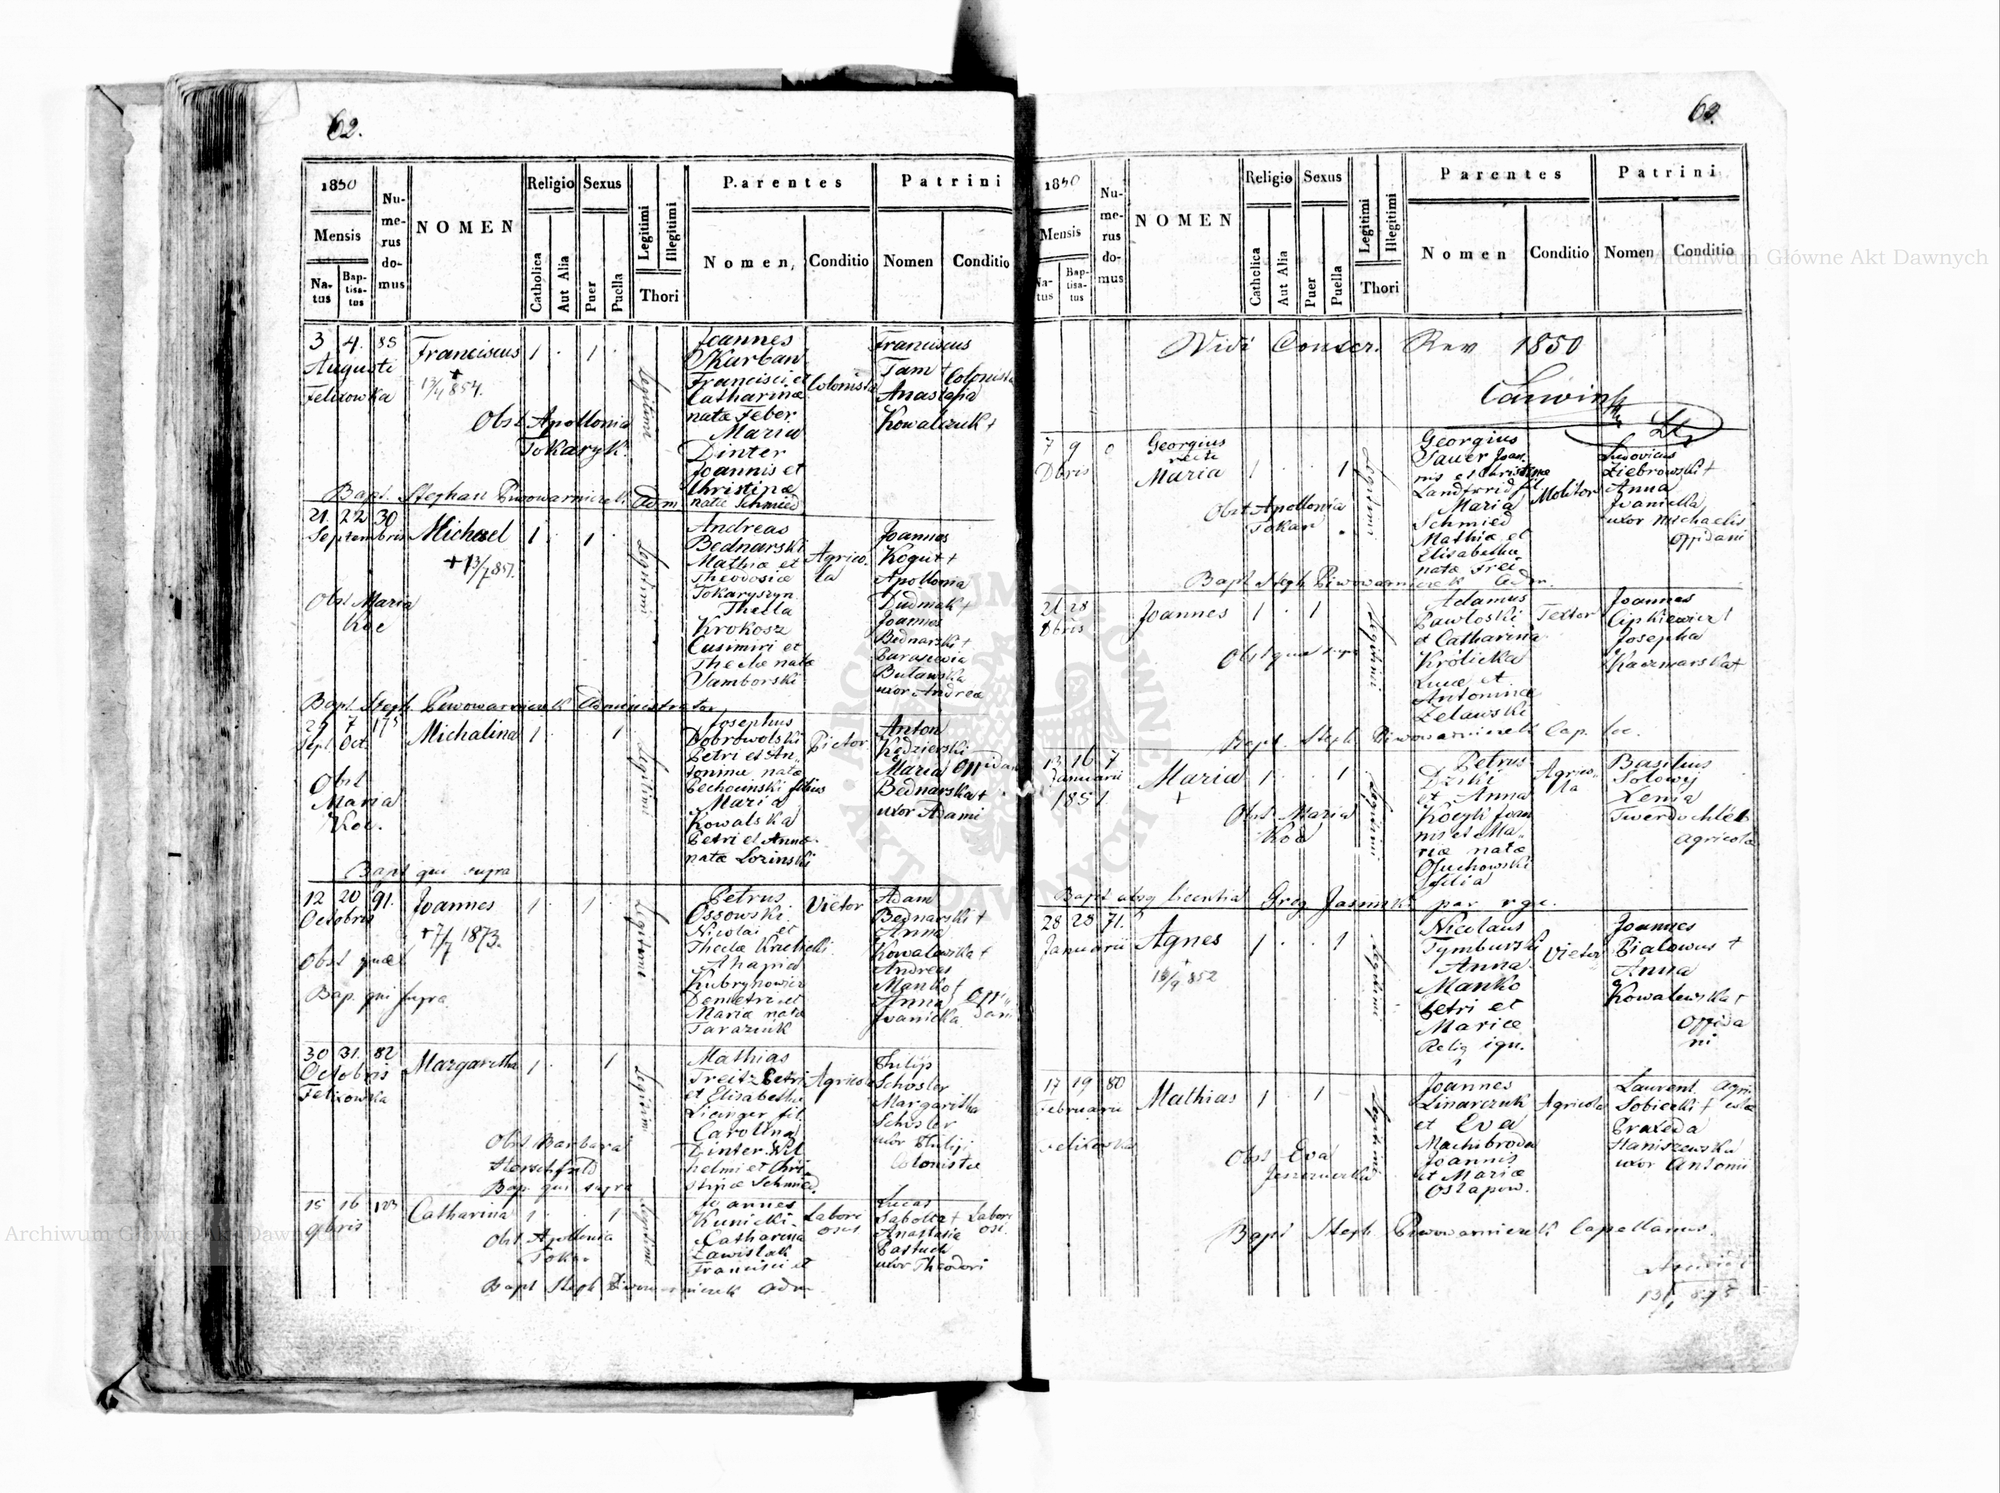 62.
1850
Mensis
Na-
tus
Bap-
tisa-
tus
Nu-
me-
rus
do-
mus
NOMEN
Religio
Catholica
Aut Alia
Sexus
Puer
Puella
Legitimi
Illegitimi
Thori
Parentes
Nomen,
Conditio
Patrini
Nomen
Conditio
3 4. 85
Augusti
Felizowka
Franciscus
1 . 1 .
Obst Apollonia
Tokaryk.
Legitimi
Joannes
Skurban
Francisci et
Catharinæ
nata Feber
Maria
Dinter
Joannis et
Christinæ
natæ Schmied
Colonista
Franciscus
Tam +
Anastasia
Kowalczuk +
Colonista
Bapt. Stephan Piwowarniczek Adm
21. 22 30
Septembris
Michael
+ 13/7 857.
1 . 1
Obst Maria
Koc
Legitimi
Andreas
Bednarski
Mathiæ et
Theodosiæ
Tokaryszyn
Thecla
Krokosz
Casimiri et
Theclæ natæ
Samborski
Agrico-
la
Joannes
Kogut +
Apollonia
Dudmak +
Joannes
Bednarski +
Parascevia
Butawska
uxor Andreæ
Bapt Steph. Piwowarniczek Administrator
29 7 175
Sept Oct.
Michalina
1 . . 1
Obst
Maria
Koc.
Legitimi
Josephus
Dobrowolski
Petri et An-
toninæ natæ
Pechowski filius
Maria
Kowalska
Petri et Annæ
natæ Lozinski
Pictor
Anton
Kędzierski
Maria Oppidani
Bednarska +
uxor Adami
Bapt qui supra
12 20 91.
Octobris
Joannes
+ 7/7 1873.
1 . 1
Obst quæ
Bap. qui supra.
Legitimi
Petrus
Ossowski
Nicolai et
Theclæ
Ahapia
Kubrynowicz
Demetri et
Mariæ natæ
Tarazuk
Victor
Adam
Bednarski +
Anna
Kowalewska +
Andreas
Manko
Anna
Iwanicka
Oppi-
dani
30 31. 82
Octobris
Felizowka
Margaretha
1 . . 1
Obst Barbara
Bap. qui supra
Legitimi
Mathias
Treitz Petri
et Elisabethæ
fil
Carolina
Dinter Wil
helmi et Chri-
stinæ Schmied.
Agricola
Philip
Schosler
Margaritha
Schosler
uxor Philipi
Colonistæ
15 16 123
9bris
Catharina
1 . . 1
Obst Apollonia
Tokar
Legitimi
Joannes
Kunicki
Catharina
Zawislak
Francisci et
Labori
osus
Lucas
Sabolta +
Anastasia
Pastuch
uxor Theodori
Labori
osi.
Bapt Steph Piwowarniczek Adm
63.
1850
Mensis
Na-
tus
Bap-
tisa-
tus
Nu-
me-
rus
do-
mus
NOMEN
Religio
Catholica
Aut Alia
Sexus
Puer
Puella
Legitimi
Illegitimi
Thori
Parentes
Nomen
Conditio
Patrini
Nomen
Conditio
Vidi Conscr. Rev 1850
7 9 0
Dbris
Georgius
recte
Maria
1 . . 1
Obst Apollonia
Tokar
Legitimi
Georgius
Sauer Joan-
nis et Christinæ
Landfrid fil
Maria
Schmied
Mathiæ et
Elisabethæ
natæ Frei
Molitor
Ludovicus
Ziebrowski +
Anna
Iwanicka
uxor Michaelis
Oppidani
Bapt. Steph Piwowarniczek Adm.
21 28
Dbris
Joannes
1 . 1
Obst quæ supra
Legitimi
Adamus
Pawloski
et Catharina
Królicka
Lucæ et
Antoninæ
Zelawski
Textor
Joannes
Cipkiewicz +
Josepha
Kaczmarska +
Bapt. Steph Piwowarniczek Cap. loc.
13 16 7
Januarii
1851.
Maria
+
1 . . 1
Obst Maria
Koc
Legitimi
Petrus
Dziki
et Anna
Joan
nis et Ma-
riæ natæ
Osuchowski
filia
Agrico-
la
Basilius
Solowij
Xenia
Twerdochleb
Agricolæ
Bapt. absq licentia Greg Jasinski par r.g.c.
28 28 71.
Januarii
Agnes
+
18/9 852
1 . . 1
Legitimi
Nicolaus
Tymburski
Anna
Manko
Petri et
Mariæ
Relig ign.
Victor
Joannes
Bialowus +
Anna
Kowalewska +
Oppida
ni
17 19 80
Februarii
Felizowka
Mathias
1 . 1
Obst Eva
Legitimi
Joannes
Linarczuk
et Eva
Machibroda
Joannis
et Mariæ
Ostapow.
Agricola
Laurent. Agri-
Sobiecki + colæ
Praxeda
Staniszewska
uxor Antonii
Bapt Steph. Piwowarniczek Capellanus.
Archiwum Główne Akt Dawnych
Archiwum Główne Akt Dawnych
ARCHIWUM GŁÓWNE
AKT DAWNYCH